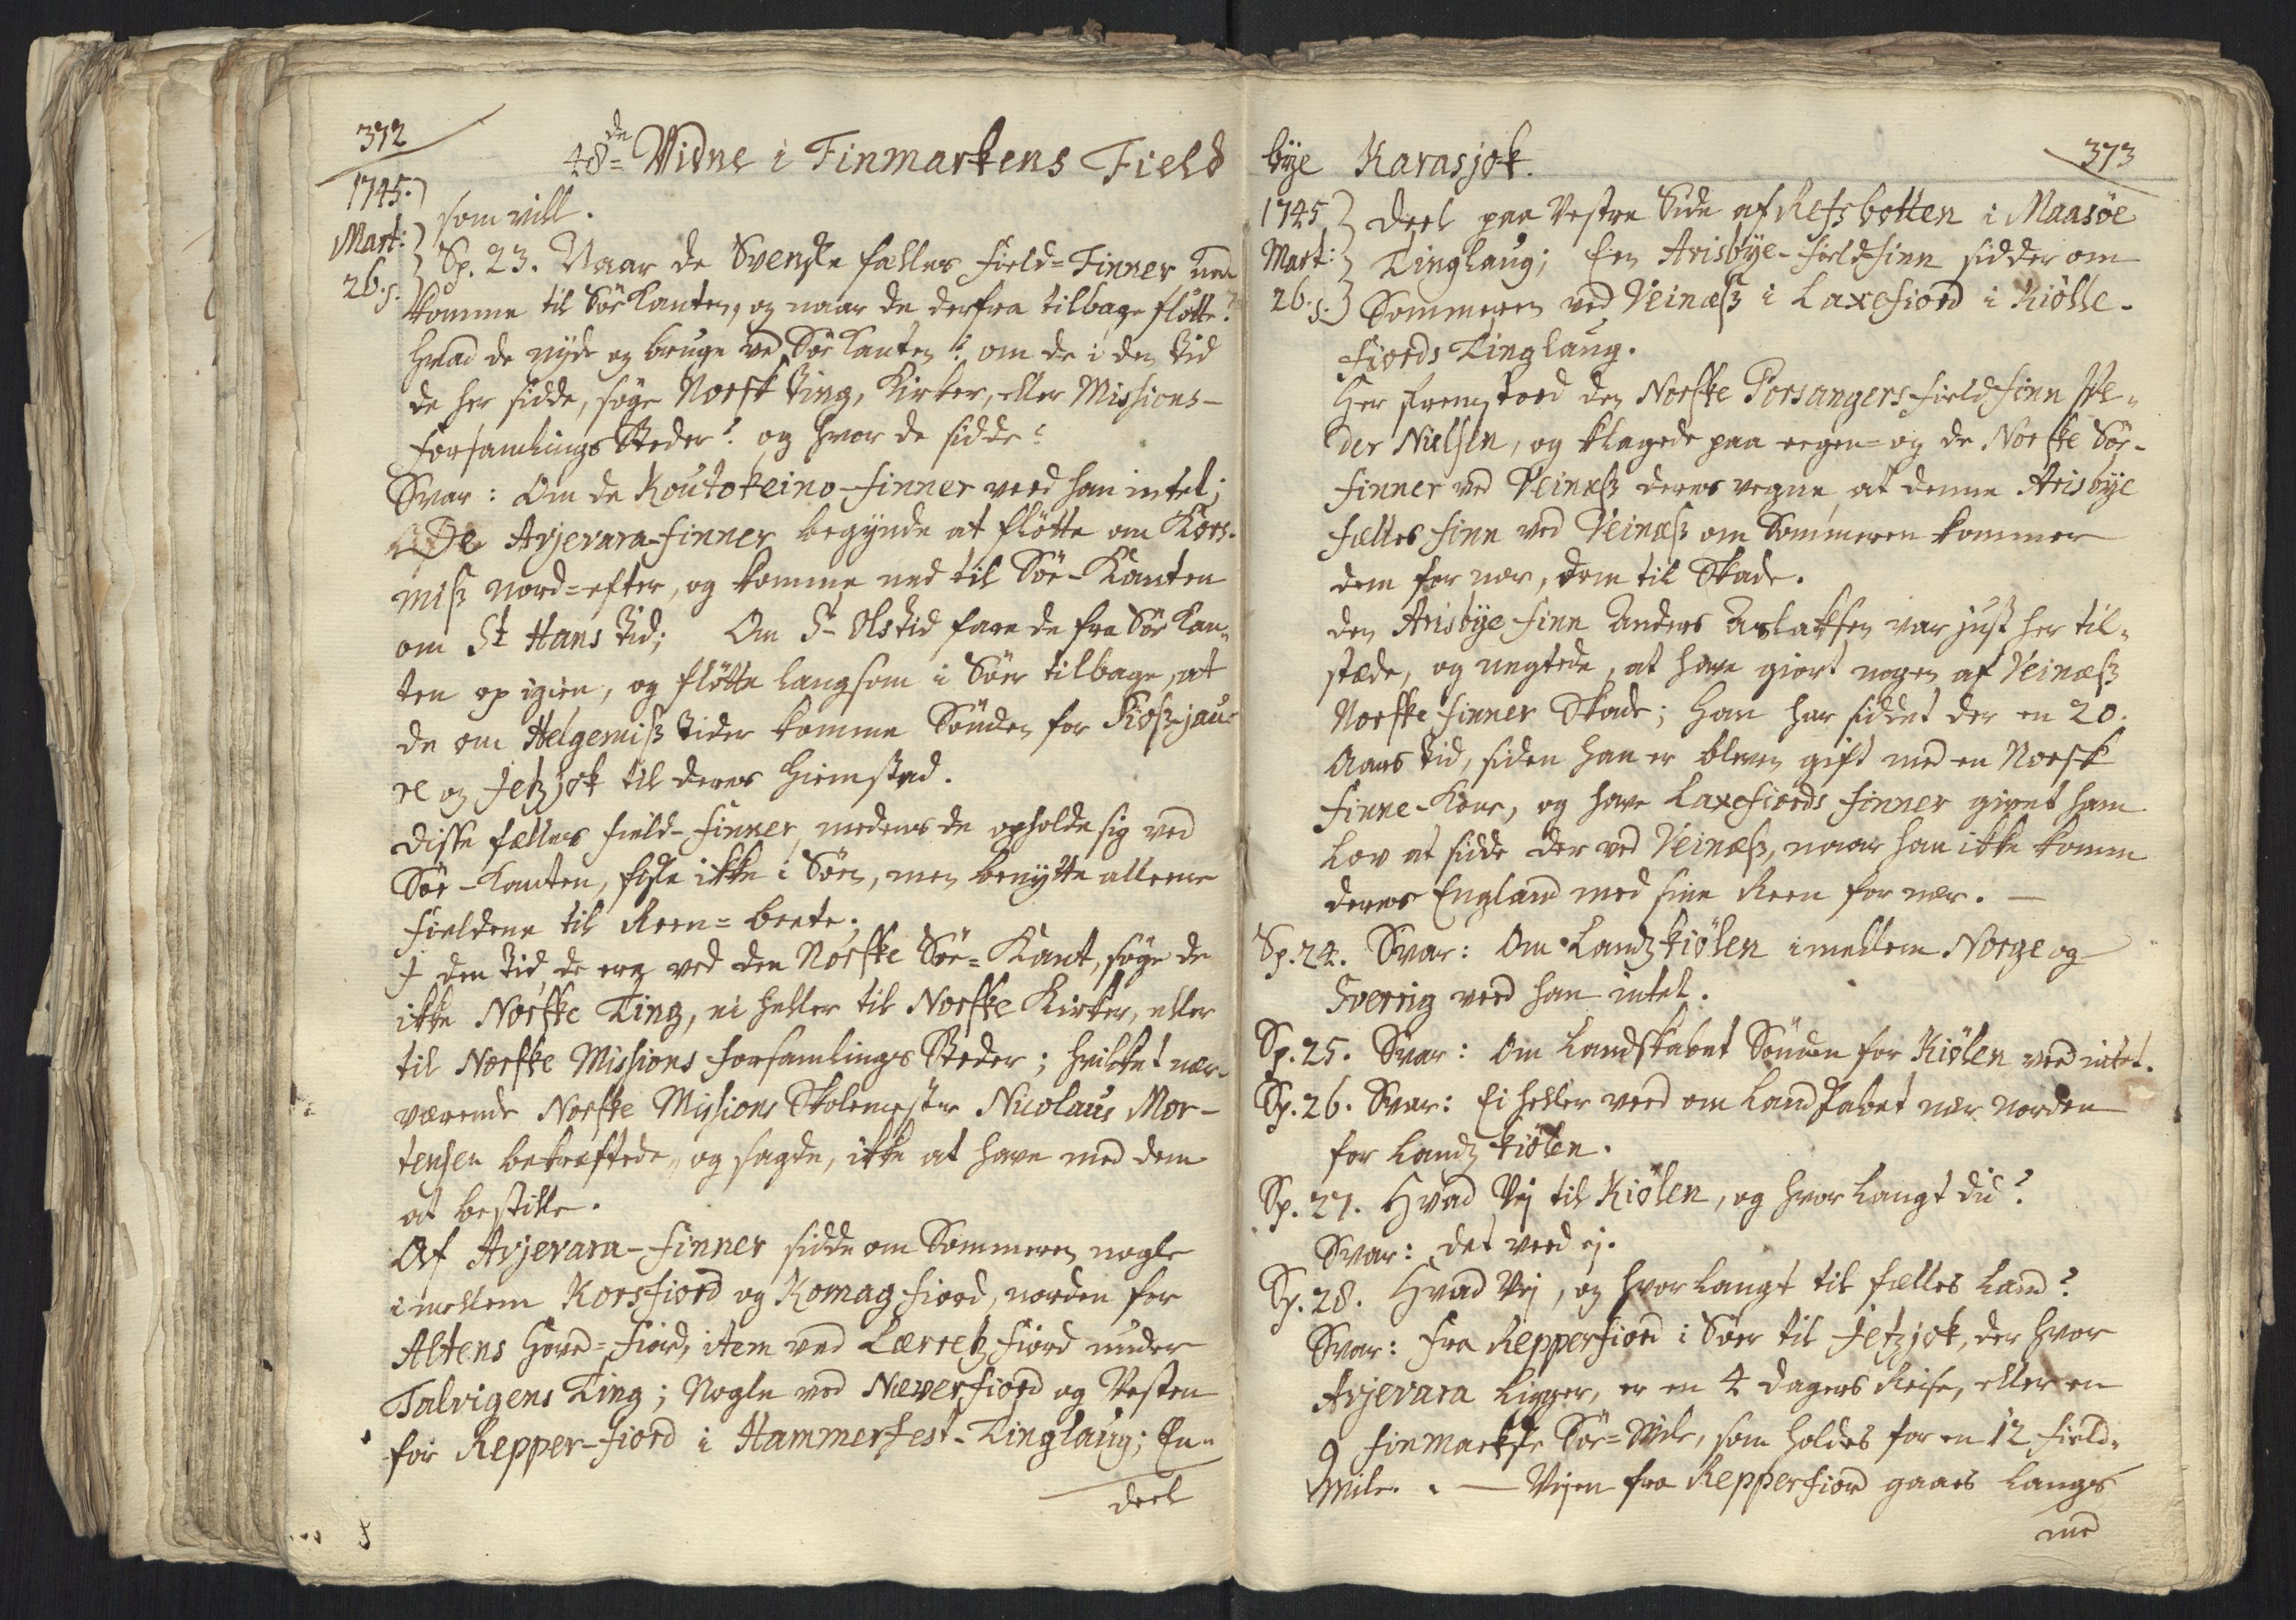 372
48de Vidne i Finmarkens Field
1745.
Mart:
26. s.
som vill.
Sp. 23. Naar de Svenske fælles Field-Finner ned
komme til Söe Kanten, og naar de derfra tilbage flötte?
Hvad de nyde og bruge ved Söe Kanten? om de i den Tid
de her sidde, söge Norsk Ting, Kirker, eller Missions-
forsamlings Steder? og hvor de sidde?
Svar: Om de Koutokeino-finner veed han intet;
De Avjevara-finner begynde at flötte om Kors-
miss Nord-efter, og komme ned til Söe-Kanten
om St Hans Tid; Om St Olstid fare de fra Söe Kan-
ten op igien, og flötte langsom i Söer tilbage, at
de om Helgemiss Tider komme Sönden for Piossjau-
re og Jetzjok til deres Hiemstad.
Disse fælles field-finner, medens de opholde sig ved
Söe-Kanten, fiske ikke i Söen, men benytte alleene
Fieldene til Reen-beete;
I den Tid, de ere ved den Norske Söe-Kant, söge de
ikke Norske Ting, ei heller til Norske Kirker, eller
til Norske Missions forsamlings Steder; hvilket nær-
værende Norske Missions Skolemester Nicolaus Mor-
tensen bekræftede, og sagde, ikke at have med dem
at bestille.
Af Avjevara-finner sidde om Sommeren nogle
imellem Korsfiord og Komagfiord, norden for
Altens Hoved-Fiord, item ved Lerretzfiord under
Talvigens Ting; Nogle ved Næverfiord og Vesten
for Repper-fiord i Hammerfest-Tinglaug; En-
deel
bye Karasjok.
373
1745
Mart:
26. s.
deel paa Vestre Side af Refsbotten i Maasöe
Tinglaug; Een Arisbye-fieldfinn sidder om
Sommeren ved Veinæss i Laxefiord i Kiölle-
fiords Tinglaug.
Her fremstoed den Norske Porsangers fieldfinn Pe-
der Nielsen, og klagede paa eegen- og de Norske Söe-
finner ved Veinæss deres vegne, at denne Arisbye
fælles finn ved Veinæss om Sommeren kommer
dem for nær, dem til Skade.
den Arisbye finn Anders Aslaksen var just her til-
stæde, og negtede, at have giort nogen af Veinæss
Norske finner Skade; Han har siddet der en 20.
Aars Tid, siden han er bleven gift med en Norsk
finne-Kone, og have Laxefiords finner givet ham
Lov at sidde der ved Veinæss, naar han ikke komme
deres England med sine Reen for nær. —
Sp. 24. Svar: Om Landzkiölen imellem Norge og
Sverrig veed han intet.
Sp. 25. Svar: Om Landskabet Sönden for Kiölen veed intet.
Sp. 26. Svar: Ei heller veed om Landskabet nær norden
for Landzkiölen.
Sp. 27. Hvad Vej til Kiölen, og hvor langt did?
Svar: det veed ej.
Sp. 28. Hvad Vej, og hvor langt til fælles Land?
Svar: fra Repperfiord i Söer til Jetzjok, der hvor
Avjevara ligger, er en 4 dagers Reise, eller en
9 finmarkske Söe-Mile, som holdes for en 12 field-
Mile. — Vejen fra Repperfiord gaaes langs
med